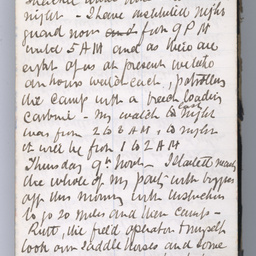 night - I have instituted night
guard now from 9 P M
until 5 A M and as there are
eight of us at present we take
an hours watch each, patrolling
the camp with a breech loading
carbine - my watch last night
was from 2 to 3 A M, to night
it will be from 1 to 2 A M
Thursday 9th Novr I started nearly
the whole of my party with buggies
off this morning with instructions
to go 20 miles and then camp -
Rutt, the field operator & myself
took our saddle horses and some